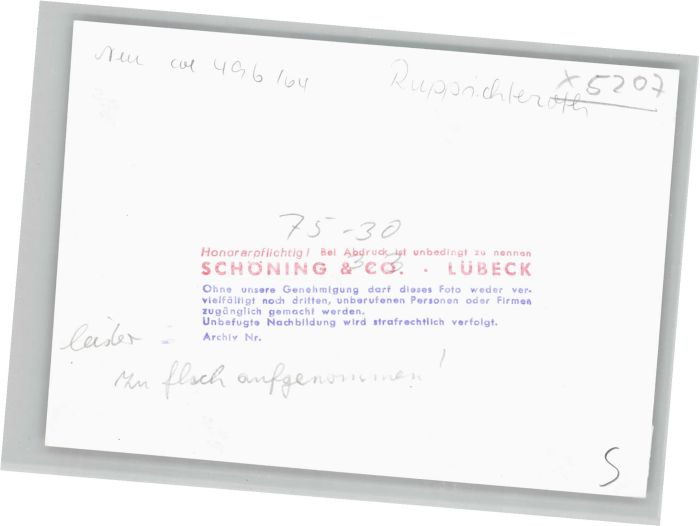 Neu col 496/64
Ruppichteroth
X 5207
75-30
Honorarpflichtig! Bei Abdruck ist unbedingt zu nennen
SCHÖNING & CO. · LÜBECK
Ohne unsere Genehmigung darf dieses Foto weder ver-
vielfältigt noch dritten, unberufenen Personen oder Firmen
zugänglich gemacht werden.
Unbefugte Nachbildung wird strafrechtlich verfolgt.
Archiv Nr.
leider
zu flach aufgenommen!
S